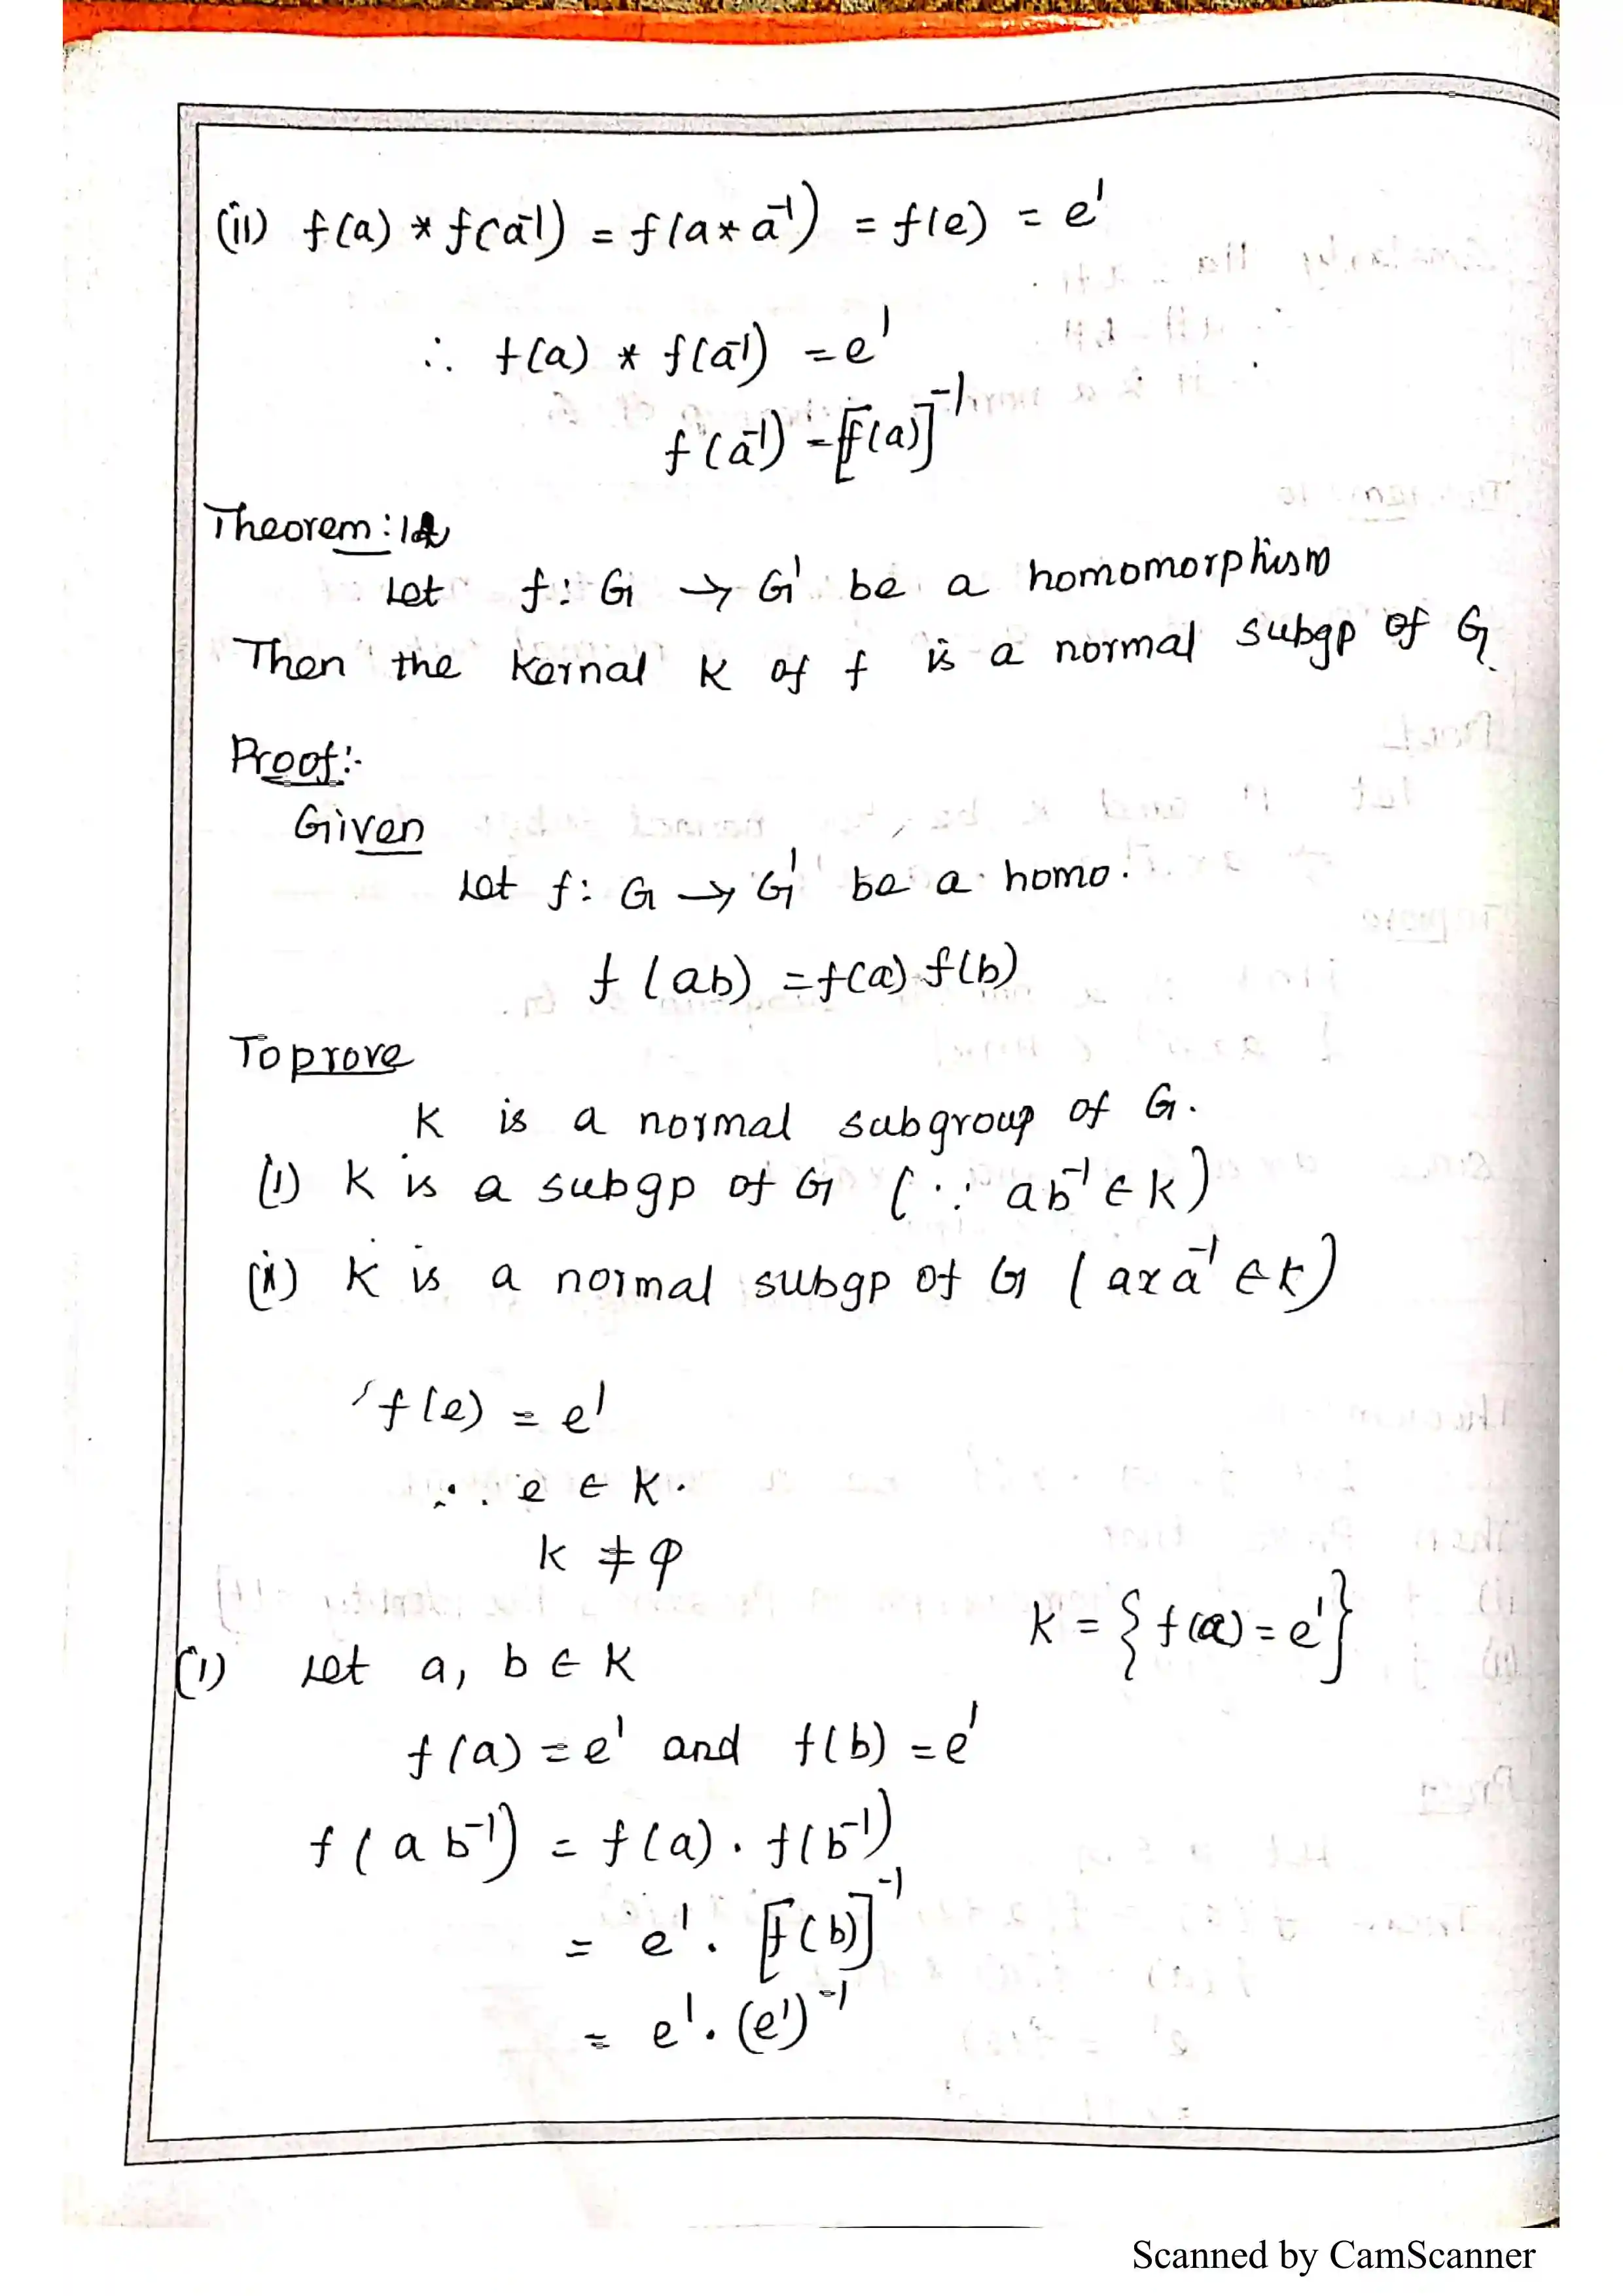 (ii) f(a) * f(a⁻¹) = f(a * a⁻¹) = f(e) = e'
∴ f(a) * f(a⁻¹) = e'
f(a⁻¹) = [f(a)]⁻¹
Theorem:
Let f: G → G' be a homomorphism
Then the Kernal K of f is a normal subgp of G.
Proof:-
Given
Let f: G → G' be a homo.
f(ab) = f(a) f(b)
To prove
K is a normal subgroup of G.
(i) K is a subgp of G (∵ ab⁻¹ ∈ K)
(ii) K is a normal subgp of G (axa⁻¹ ∈ K)
f(e) = e'
∴ e ∈ K.
K ≠ φ
K = {f(a) = e'}
(i) Let a, b ∈ K
f(a) = e' and f(b) = e'
f(ab⁻¹) = f(a) . f(b⁻¹)
= e' . [f(b)]⁻¹
= e' . (e')⁻¹
Scanned by CamScanner